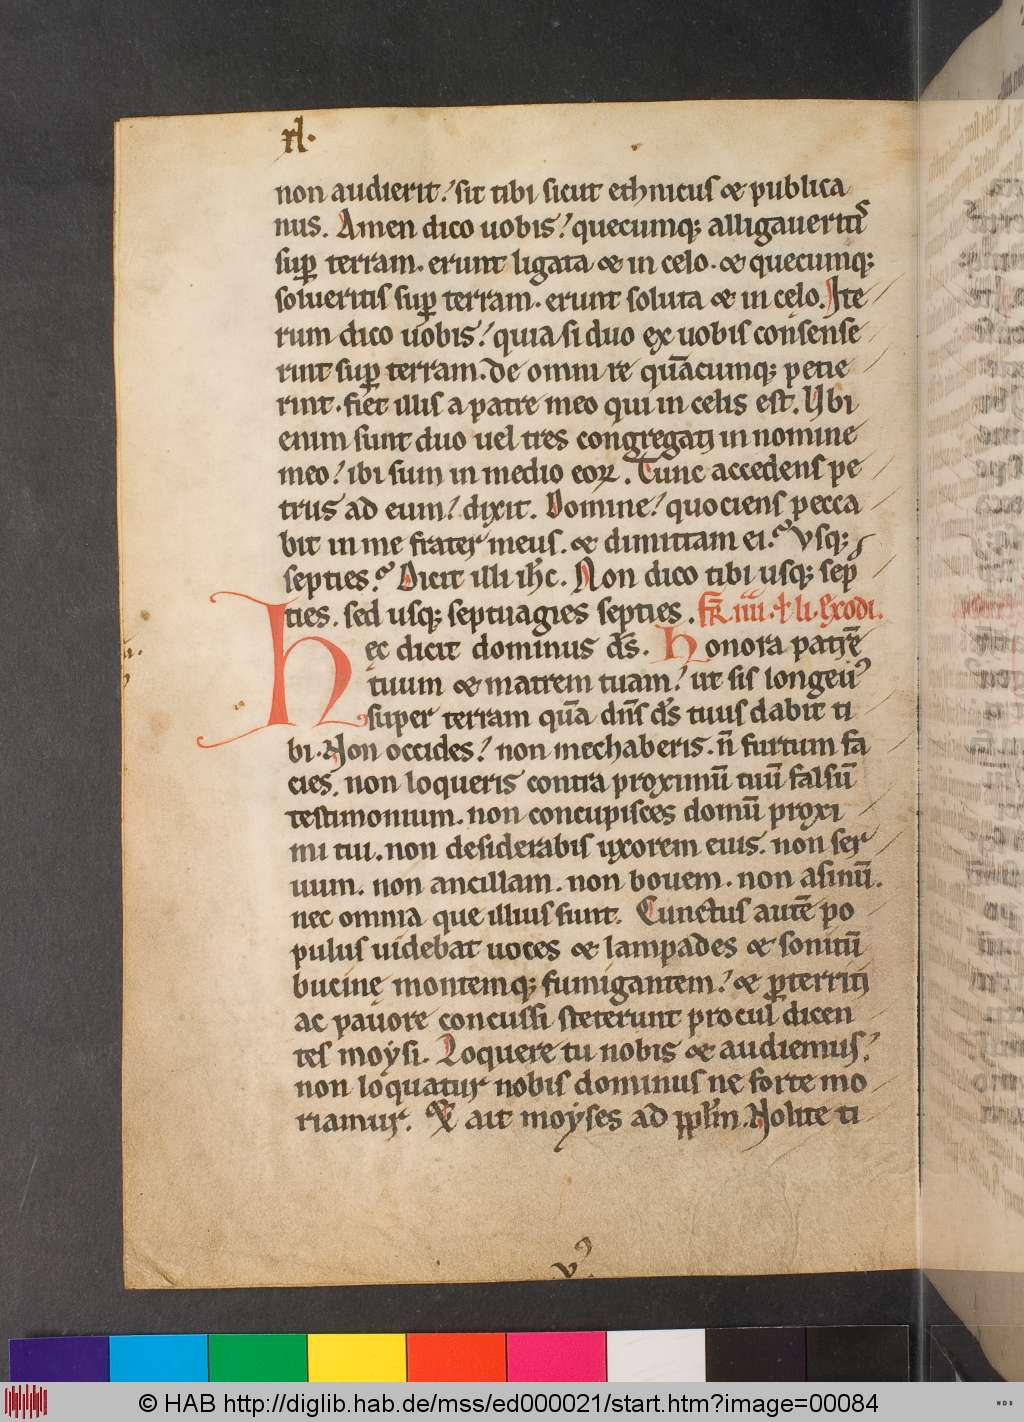 xl.
non audierit. sit tibi sicut ethnicus & publica
nus. Amen dico uobis. quecumq; alligaueritis
sup̱ terram. erunt ligata & in celo. & quecumq;
solueritis sup̱ terram. erunt soluta & in celo. Ite
rum dico uobis. quia si duo ex uobis consense
rint sup̱ terram. de omni re quācumq; petie
rint. fiet illis a patre meo qui in celis est. Vbi
enim sunt duo uel tres congregati in nomine
meo. ibi sum in medio eoꝝ. Tunc accedens pe
trus ad eum. dixit. Domine. quociens pecca
bit in me frater meus. & dimittam ei. Vsq;
septies. Dicit illi ihc̄. Non dico tibi usq; sep
ties. sed usq; septuagies septies. fr̄ iiii. li. Exodi.
Hec dicit dominus ds̄. Honora patrē
tuum & matrem tuam. ut sis longeuꝰ
super terram quā dn̄s ds̄ tuus dabit ti
bi. Non occides. non mechaberis. n̄ furtum fa
cies. non loqueris contra proximū tuū falsū
testimonium. non concupisces domū proxi
mi tui. non desiderabis uxorem eius. non ser
uum. non ancillam. non bouem. non asinū.
nec omnia que illius sunt. Cunctus autē po
pulus uidebat uoces & lampades & sonitū
bucine montemq; fumigantem. & ꝑterriti
ac pauore concussi steterunt procul dicen
tes moysi. Loquere tu nobis & audiemus.
non loquatur nobis dominus ne forte mo
riamur. Et ait moyses ad ppl̄m. Nolite ti
vꝰ
© HAB http://diglib.hab.de/mss/ed000021/start.htm?image=00084